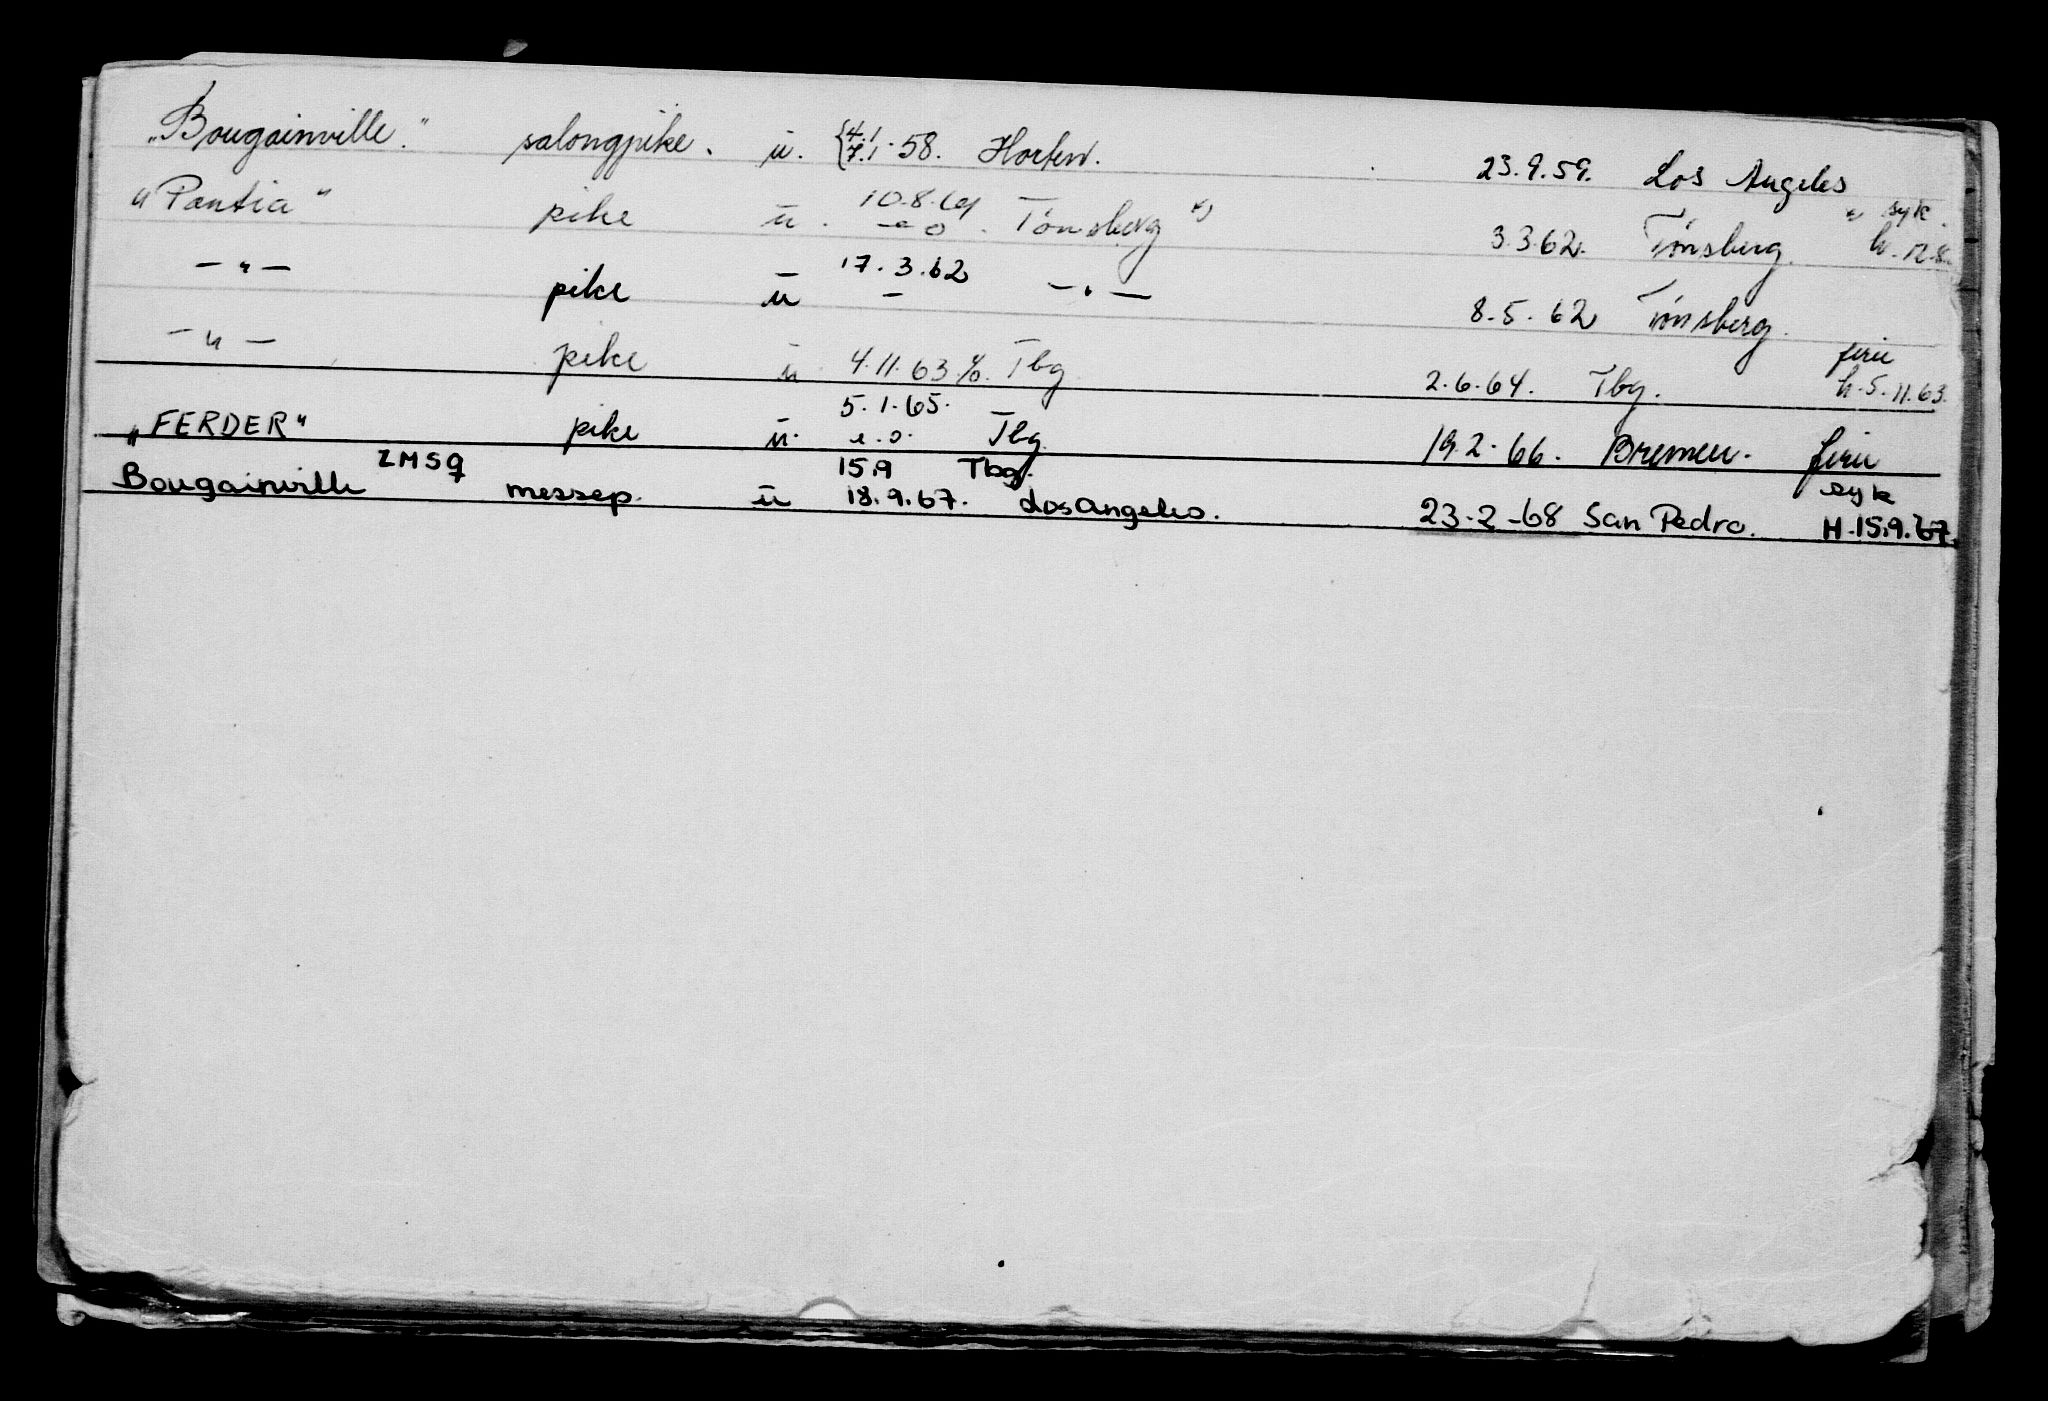 „Bougainville." salongpike. u. {4.1 7.1.58. Horten. 23.9.59. Los Angeles
„Pontia" pike u. 10.8.61 Tönsberg *) 3.3.62. Tønsberg. *) syk. h. 12.8.
— „ — pike u 17.3.62 — „ — 8.5.62 Tønsberg.
— „ — pike u 4.11.63 %. Tbg 2.6.64. Tbg. ferie h. 5.11.63.
„FERDER" pike u. 5.1.65. e.o. Tbg. 19.2.66. Bremen. ferie
Bougainville LMSQ messep. u 15.9 Tbg. 18.9.67. Los Angeles. 23-2-68 San Pedro. syk H.15.9.67.